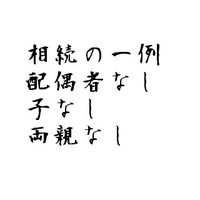 相続の一例
配偶者なし
子なし
両親なし